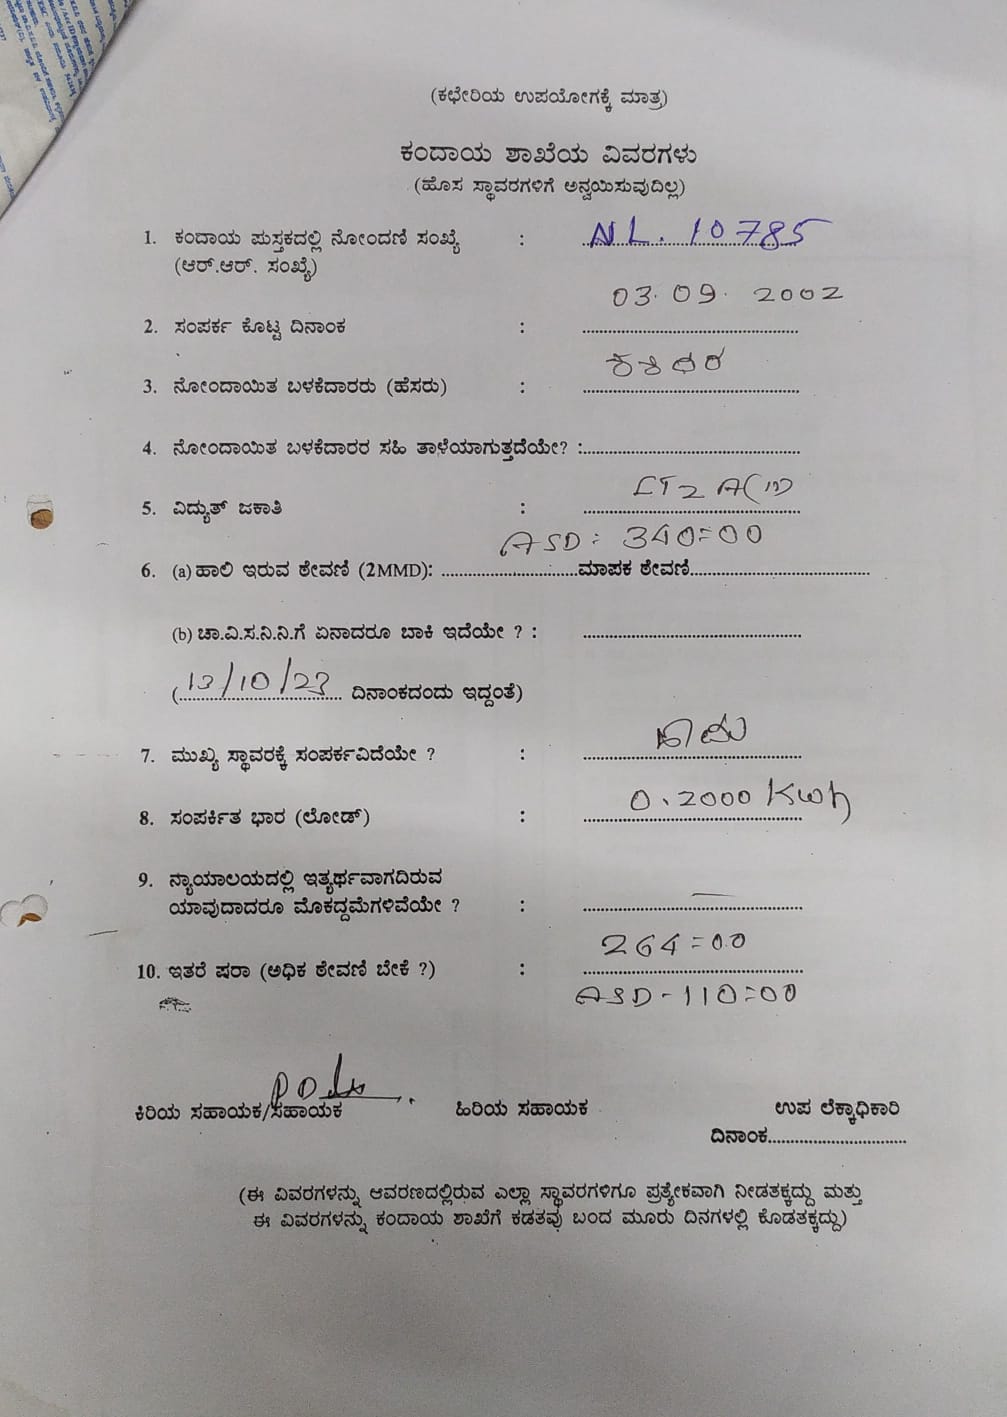 (ಕಛೇರಿಯ ಉಪಯೋಗಕ್ಕೆ ಮಾತ್ರ)
ಕಂದಾಯ ಶಾಖೆಯ ವಿವರಗಳು
(ಹೊಸ ಸ್ಥಾವರಗಳಿಗೆ ಅನ್ವಯಿಸುವುದಿಲ್ಲ)
1. ಕಂದಾಯ ಪುಸ್ತಕದಲ್ಲಿ ನೋಂದಣಿ ಸಂಖ್ಯೆ : NL. 10785
(ಆರ್.ಆರ್. ಸಂಖ್ಯೆ)
03.09.2002
2. ಸಂಪರ್ಕ ಕೊಟ್ಟ ದಿನಾಂಕ : ........................
3. ನೋಂದಾಯಿತ ಬಳಕೆದಾರರು (ಹೆಸರು) : ........................
4. ನೋಂದಾಯಿತ ಬಳಕೆದಾರರ ಸಹಿ ತಾಳೆಯಾಗುತ್ತದೆಯೇ? :........................
5. ವಿದ್ಯುತ್ ಜಕಾತಿ : LT2 A(ii)
ASD: 340=00
6. (a) ಹಾಲಿ ಇರುವ ಠೇವಣಿ (2MMD): ........................ಮಾಪಕ ಠೇವಣಿ........................
(b) ಚಾ.ವಿ.ಸ.ನಿ.ನಿ.ಗೆ ಏನಾದರೂ ಬಾಕಿ ಇದೆಯೇ ? : ........................
(13/10/23 ದಿನಾಂಕದಂದು ಇದ್ದಂತೆ)
7. ಮುಖ್ಯ ಸ್ಥಾವರಕ್ಕೆ ಸಂಪರ್ಕವಿದೆಯೇ ? : ........................
8. ಸಂಪರ್ಕಿತ ಭಾರ (ಲೋಡ್) : 0.2000 Kwh
9. ನ್ಯಾಯಾಲಯದಲ್ಲಿ ಇತ್ಯರ್ಥವಾಗದಿರುವ
ಯಾವುದಾದರೂ ಮೊಕದ್ದಮೆಗಳಿವೆಯೇ ? : —
264=00
10. ಇತರೆ ಷರಾ (ಅಧಿಕ ಠೇವಣಿ ಬೇಕೆ ?) : ........................
ASD-110=00
ಕಿರಿಯ ಸಹಾಯಕ/ಸಹಾಯಕ ಹಿರಿಯ ಸಹಾಯಕ ಉಪ ಲೆಕ್ಕಾಧಿಕಾರಿ
ದಿನಾಂಕ........................
(ಈ ವಿವರಗಳನ್ನು ಆವರಣದಲ್ಲಿರುವ ಎಲ್ಲಾ ಸ್ಥಾವರಗಳಿಗೂ ಪ್ರತ್ಯೇಕವಾಗಿ ನೀಡತಕ್ಕದ್ದು ಮತ್ತು
ಈ ವಿವರಗಳನ್ನು ಕಂದಾಯ ಶಾಖೆಗೆ ಕಡತವು ಬಂದ ಮೂರು ದಿನಗಳಲ್ಲಿ ಕೊಡತಕ್ಕದ್ದು)